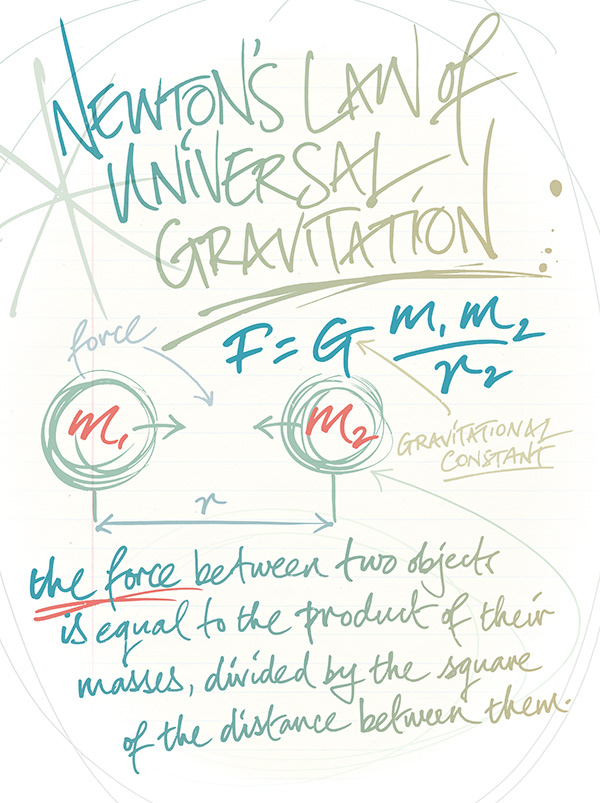 NEWTON'S LAW of
UNIVERSAL
GRAVITATION
force
F = G m₁ m₂
r₂
m₁
m₂
GRAVITATIONAL
CONSTANT
r
the force between two objects
is equal to the product of their
masses, divided by the square
of the distance between them.